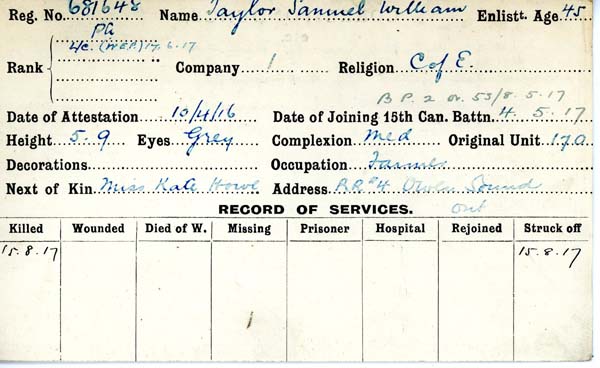 Reg. No. 681648 Name Taylor Samuel William Enlistt. Age 45
Pte
L/c. (W.E.F.) 17.6.17
Rank Company 1 Religion C of E.
B P. 2 or. 53/8.5.17
Date of Attestation 10/4/16 Date of Joining 15th Can. Battn. 4. 5. 17
Height 5.9 Eyes Grey Complexion Med Original Unit 170
Decorations Occupation Farmer
Next of Kin Miss Kate Howe Address R.R.#4 Owen Sound
Ont
RECORD OF SERVICES.
Killed Wounded Died of W. Missing Prisoner Hospital Rejoined Struck off
15.8.17 15.8.17